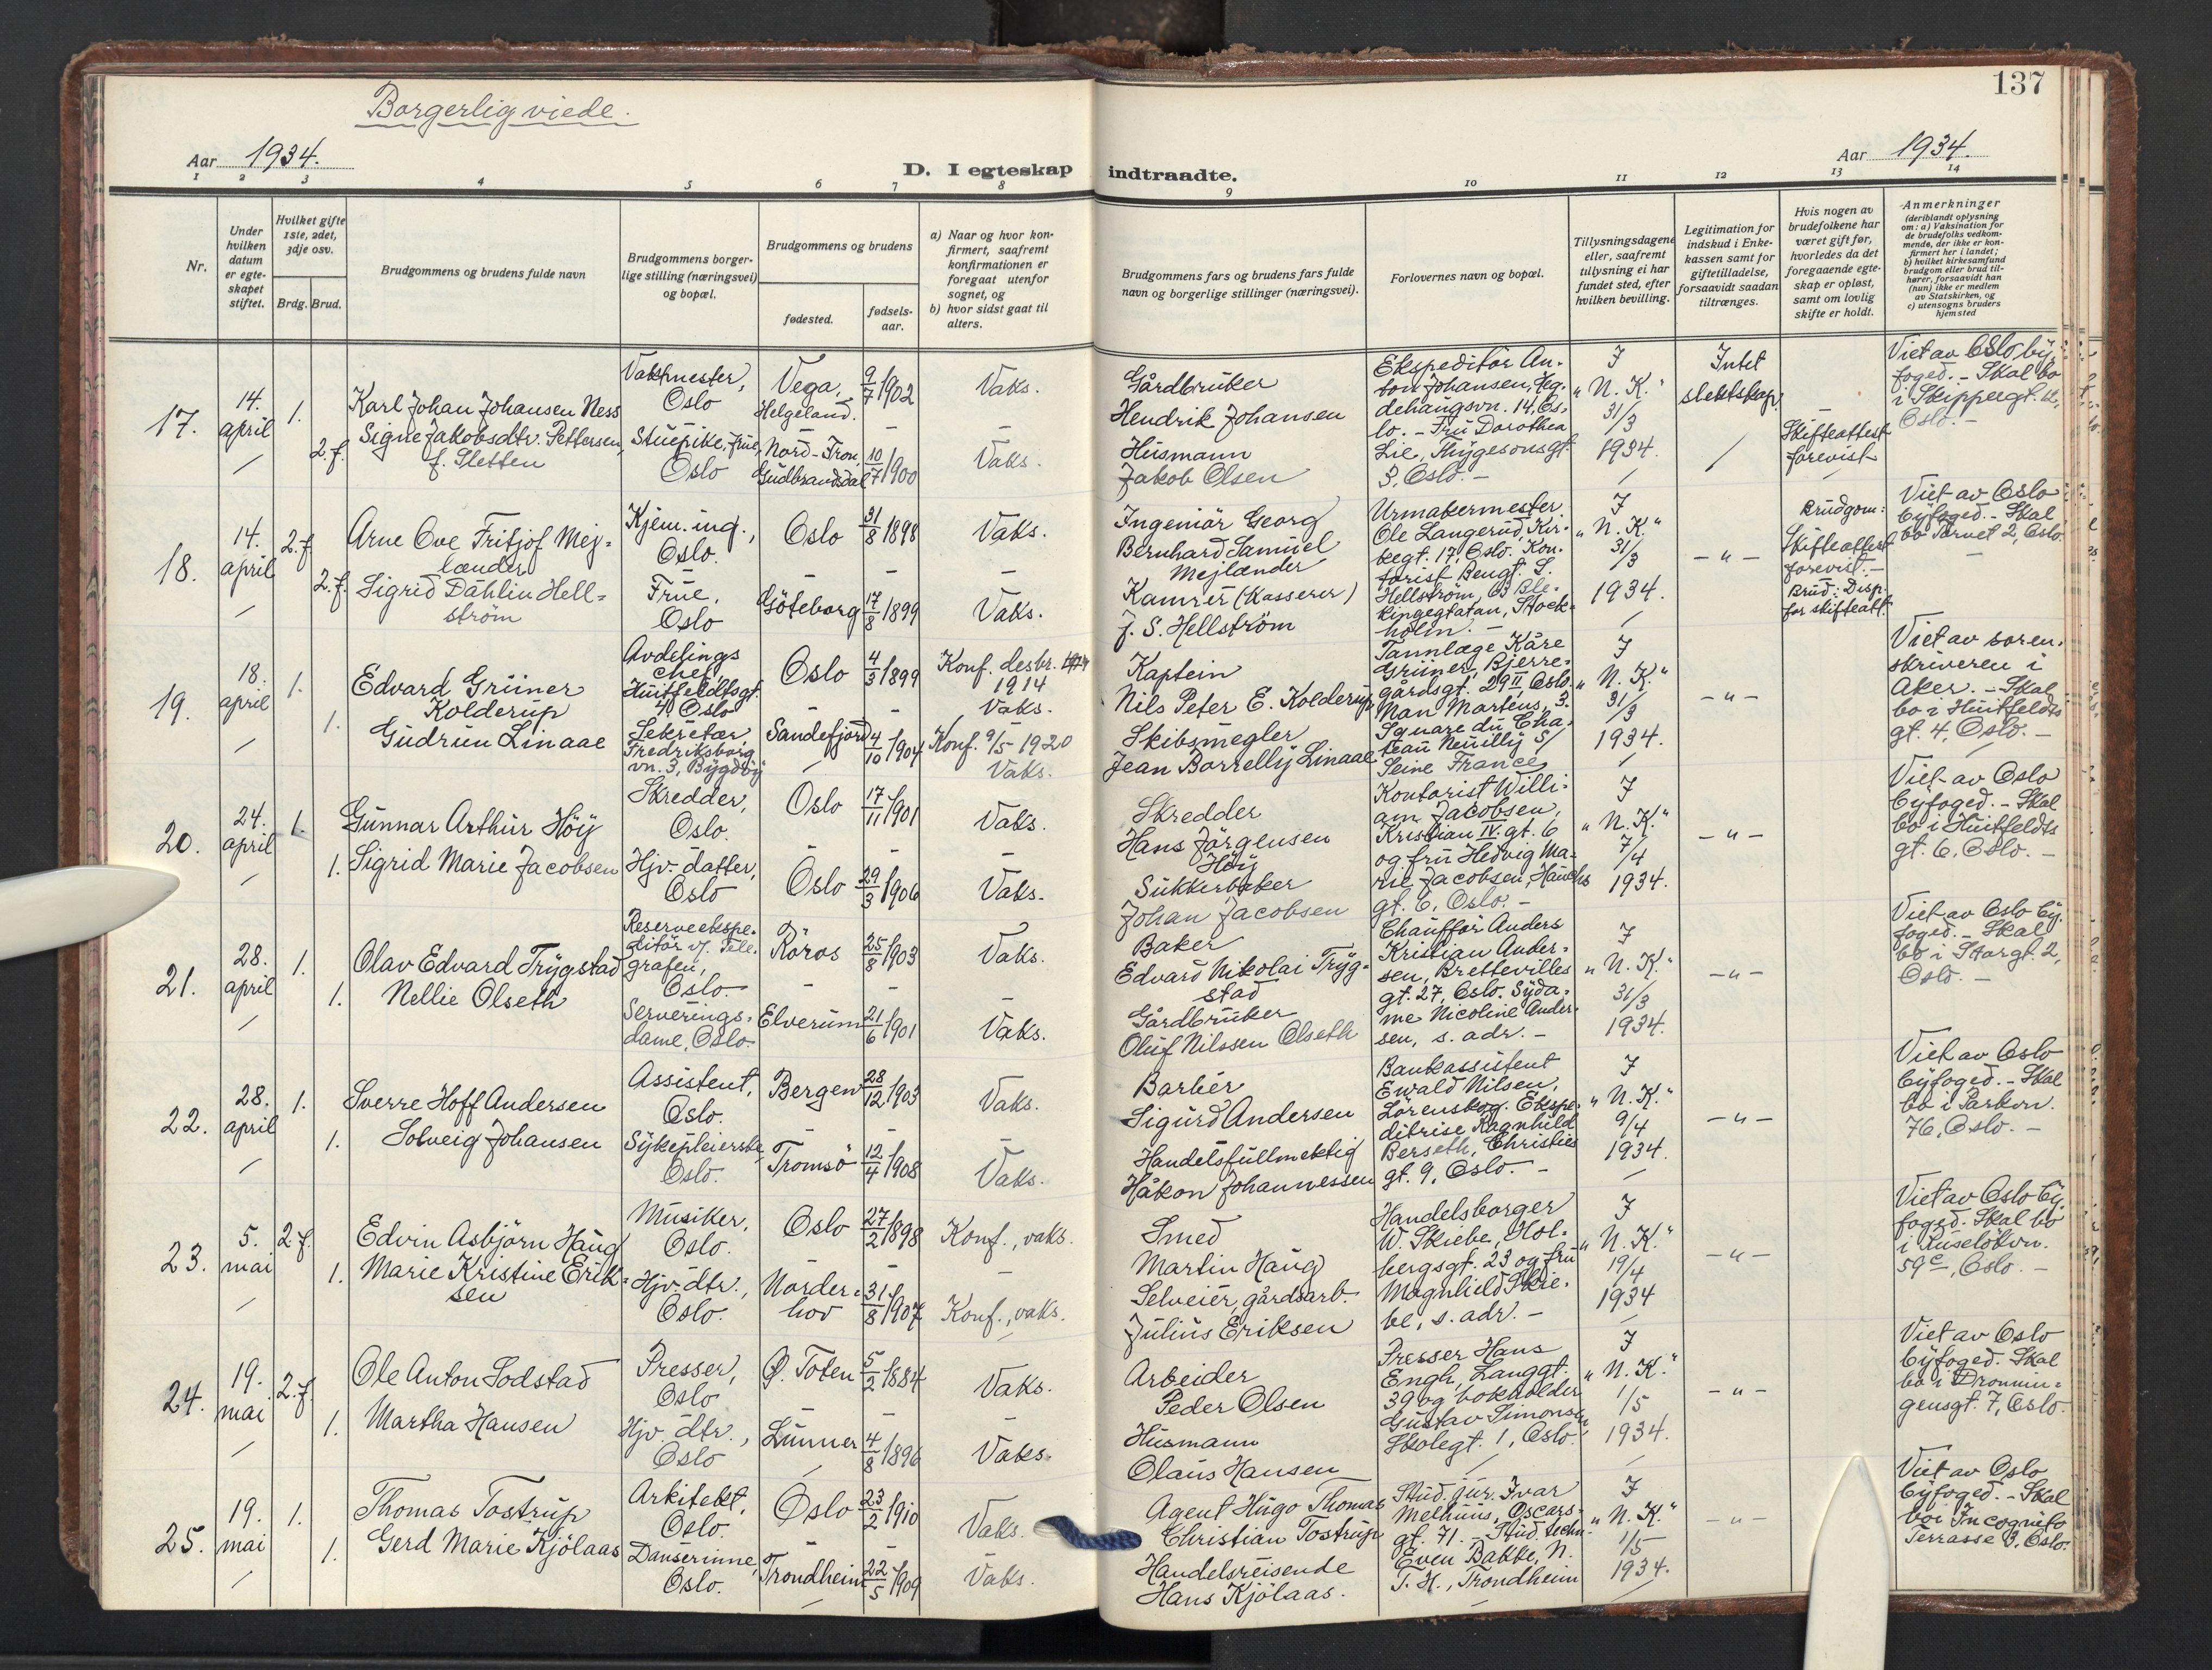 137
Borgerlig viede.
Aar 1934.
D. I egteskap indtraadte.
Aar 1934.
1 2 3 4 5 6 7 8 9 10 11 12 13 14
Nr.
Under hvilken datum er egteskapet stiftet.
Hvilket gifte 1ste, 2det, 3dje osv.
Brdg. Brud.
Brudgommens og brudens fulde navn
Brudgommens borgerlige stilling (næringsvei) og bopæl.
Brudgommens og brudens
fødested.
fødselsaar.
a) Naar og hvor konfirmert, saafremt konfirmationen er foregaat utenfor sognet, og
b) hvor sidst gaat til alters.
Brudgommens fars og brudens fars fulde navn og borgerlige stillinger (næringsvei).
Forlovernes navn og bopæl.
Tillysningsdagene eller, saafremt tillysning ei har fundet sted, efter hvilken bevilling.
Legitimation for indskud i Enkekassen samt for giftetilladelse, forsaavidt saadan tiltrænges.
Hvis nogen av brudefolkene har været gift før, hvorledes da det foregaaende egteskap er opløst, samt om lovlig skifte er holdt.
Anmerkninger (deriblandt oplysning om: a) Vaksination for de brudefolks vedkommende, der ikke er konfirmert her i landet; b) hvilket kirkesamfund brudgom eller brud tilhører, forsaavidt han (hun) ikke er medlem av Statskirken, og c) utensogns bruders hjemsted
17.
14. april
1.
2. f.
Karl Johan Johansen Ness
Signe Jakobsdtr. Pettersen,
f. Sletten
Vaktmester,
Oslo
Stuepike, frue,
Oslo
Vega,
Helgeland.
Nord-Fron,
Gudbrandsdal
9/7 1902
10/7 1900
Vaks.
Vaks.
Gårdbruker
Hendrik Johansen
Husmann
Jakob Olsen
Ekspeditör An-
ton Johansen, Geg-
dehaugsvn. 14, Os-
lo. - Fru Dorothea
Lie, Thygesonsgt.
3, Oslo. -
I
"N. K."
31/3
1934.
Intet
slektskap
Skifteattest
forevist
Viet av Oslo by-
foged. - Skal bo
i Skippergt. 12,
Oslo. -
18.
14. april
2. f.
2. f.
Arne Ove Fritjof Mej-
lænder
Sigrid Dahlin Hell-
ström
Kjem. ing.,
Oslo.
Frue,
Oslo
Oslo
Göteborg
31/8 1898
17/8 1899
Vaks.
Vaks.
Ingeniör Georg
Bernhard Samuel
Mejlænder
Kamrer (Kasserer)
J. S. Hellström
Urmakermester
Ole Langerud, Kir-
kegt. 17, Oslo. Kon-
torist Bengt S.
Hellström, 63 Ble-
kingegatan, Stock-
holm. -
I
"N. K."
31/3
1934.
- " -
Brudgom:
Skifteattest
forevist. -
Brud: Disp.
for skifteatt.
Viet av Oslo
byfoged. - Skal
bo Torvet 2, Oslo.
19.
18. april
1.
1.
Edvard Grüner
Kolderup
Gudrun Linaae
Avdelings
chef,
Huitfeldtsgt.
4, Oslo
Sekretær
Fredriksborg
vn. 3, Bygdöy
Oslo
Sandefjord
4/3 1899
4/10 1904
Konf. desbr.
1914
Vaks.
Konf. 9/5 1920
Vaks.
Kaptein
Nils Peter E. Kolderup
Skibsmegler
Jean Borrelly Linaae
Tannlæge Kåre
Grüner, Bjerre-
gårdsgt. 29 II, Oslo.
Man Martens, 3.
Square du Cha-
teau Neuilly S/
Seine France
I
"N. K."
31/3
1934.
- " -
Viet av soren-
skriveren i
Aker. - Skal
bo i Huitfeldts
gt. 4, Oslo. -
20.
24. april
1.
1.
Gunnar Arthur Höy
Sigrid Marie Jacobsen
Skredder,
Oslo.
Hjv. datter,
Oslo
Oslo
Oslo
17/11 1901
29/3 1906
Vaks.
Vaks.
Skredder
Hans Jörgensen
Höy
Sukkerbaker
Johan Jacobsen
Kontorist Willi-
am Jacobsen,
Kristian IV. gt. 6
og fru Hedvig Ma-
rie Jacobsen, Hauchs
gt. 6, Oslo. -
I
"N. K."
7/4
1934.
- " -
Viet av Oslo
byfoged. - Skal
bo i Huitfeldts
gt. 6, Oslo. -
21.
28. april
1.
1.
Olav Edvard Trygstad
Nellie Olseth
Reserveekspe-
ditör v/ Tele-
grafen,
Oslo.
Serverings-
dame, Oslo.
Röros
Elverum
25/8 1903
21/6 1901
Vaks.
Vaks.
Baker
Edvard Nikolai Tryg-
stad
Gårdbruker
Oluf Nilssen Olseth
Chaufför Anders
Kristian Ander-
sen, Brettevilles
gt. 27, Oslo. Syda-
me Nicoline Ander-
sen, s. adr. -
I
"N. K."
31/3
1934.
- " -
Viet av Oslo by-
foged. - Skal
bo i Storgt. 2,
Oslo. -
22.
28. april
1.
1.
Sverre Hoff Andersen
Solveig Johansen
Assistent,
Oslo.
Sykepleierske,
Oslo.
Bergen
Tromsö
28/12 1903
12/4 1908
Vaks.
Vaks.
Barbér
Sigurd Andersen
Handelsfullmektig
Håkon Johannessen
Bankassistent
Ewald Nilsen,
Lörenskog. Ekspe-
ditrise Ragnhild
Berseth, Christies
gt. 9, Oslo. -
I
"N. K."
9/4
1934.
- " -
Viet av Oslo
byfoged. - Skal
bo i Parkvn.
76, Oslo. -
23.
5. mai
2. f.
1.
Edvin Asbjörn Haug
Marie Kristine Erik-
sen
Musiker,
Oslo.
Hjv. dtr.,
Oslo.
Oslo
Norder-
hov
27/2 1898
31/8 1907
Konf., vaks.
Konf., vaks.
Smed
Martin Haug
Selveier, gårdsarb.
Julius Eriksen
Handelsborger
W. Skiebe, Hol-
bergsgt. 23 og fru
Magnhild Skie-
be, s. adr. -
I
"N. K."
19/4
1934
- " -
Viet av Oslo by-
foged. Skal bo
i Ruselökvn.
59c, Oslo. -
24.
19. mai
2. f.
1.
Ole Anton Sodstad
Martha Hansen
Presser,
Oslo
Hjv. dtr.,
Oslo
Ø. Toten
Lunner
5/2 1884
4/8 1896
Vaks.
Vaks.
Arbeider
Peder Olsen
Husmann
Olaus Hansen
Presser Hans
Engh, Langgt.
39 og bokholder
Gustav Simonsen
Skolegt. 1, Oslo.
I
"N. K."
1/5
1934.
- " -
Viet av Oslo
byfoged. Skal
bo i Dronnin-
gensgt. 7, Oslo.
25.
19. mai
1.
1.
Thomas Tostrup
Gerd Marie Kjölaas
Arkitekt,
Oslo.
Danserinne,
Oslo.
Oslo
Trondheim
23/2 1910
22/5 1909
Vaks.
Vaks.
Agent Hugo Thomas
Christian Tostrup
Handelsreisende
Hans Kjölaas.
Stud. jur. Ivar
Melhuus, Oscars-
gt. 71. - Stud. techn.
Even Bakke, N.
T. H., Trondheim
I
"N. K."
1/5
1934.
- " -
Viet av Oslo
byfoged. - Skal
bo i Incognito
Terrasse 3, Oslo.